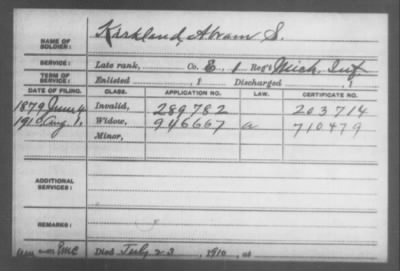 NAME OF SOLDIER: Kirkland, Abram S.
SERVICE: Late rank, Co. E, 1 Reg't Mich. Inf.
TERM OF SERVICE: Enlisted , 1 Discharged , 1
DATE OF FILING. CLASS. APPLICATION NO. LAW. CERTIFICATE NO.
1879 June 4 Invalid, 289782 203714
1910 Aug 1. Widow, 946667 a 710479
Minor,
ADDITIONAL SERVICES:
REMARKS:
Died July 23, 1910, at